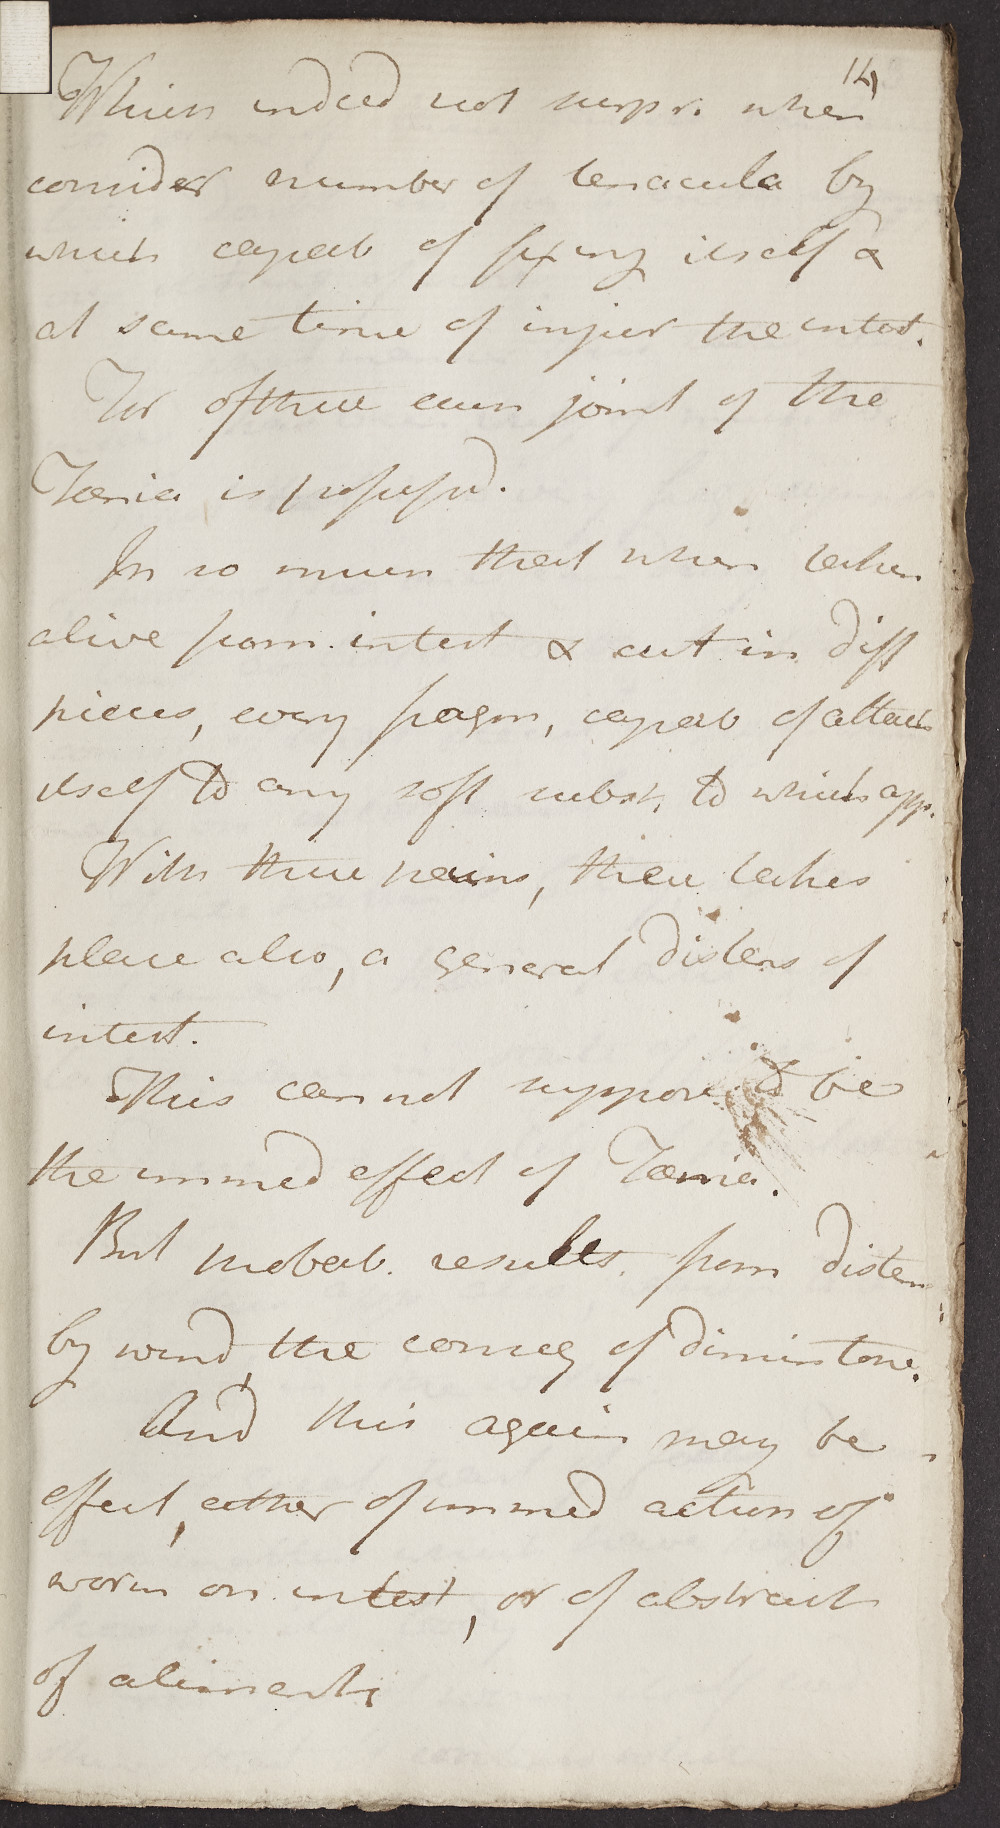 14
Which indeed not surpr. when
consider number of tenacula by
which capab of fixing itself &
at same time of injur the intest.
For of these each joint of the
Tænia is possessd.
In so much that when taken
alive from intest & cut in diff
pieces, every fragm, capab of attach
itself to any soft subst, to which app.
With these pains, there takes
place also, a general distens of
intest.
This cannot suppose to be
the immed effect of Tænia.
But probab. results from disten
by wind, the conseq of dimin tone.
And this again may be
effect, either of immed action of
worm on intest, or of abstract
of aliment;